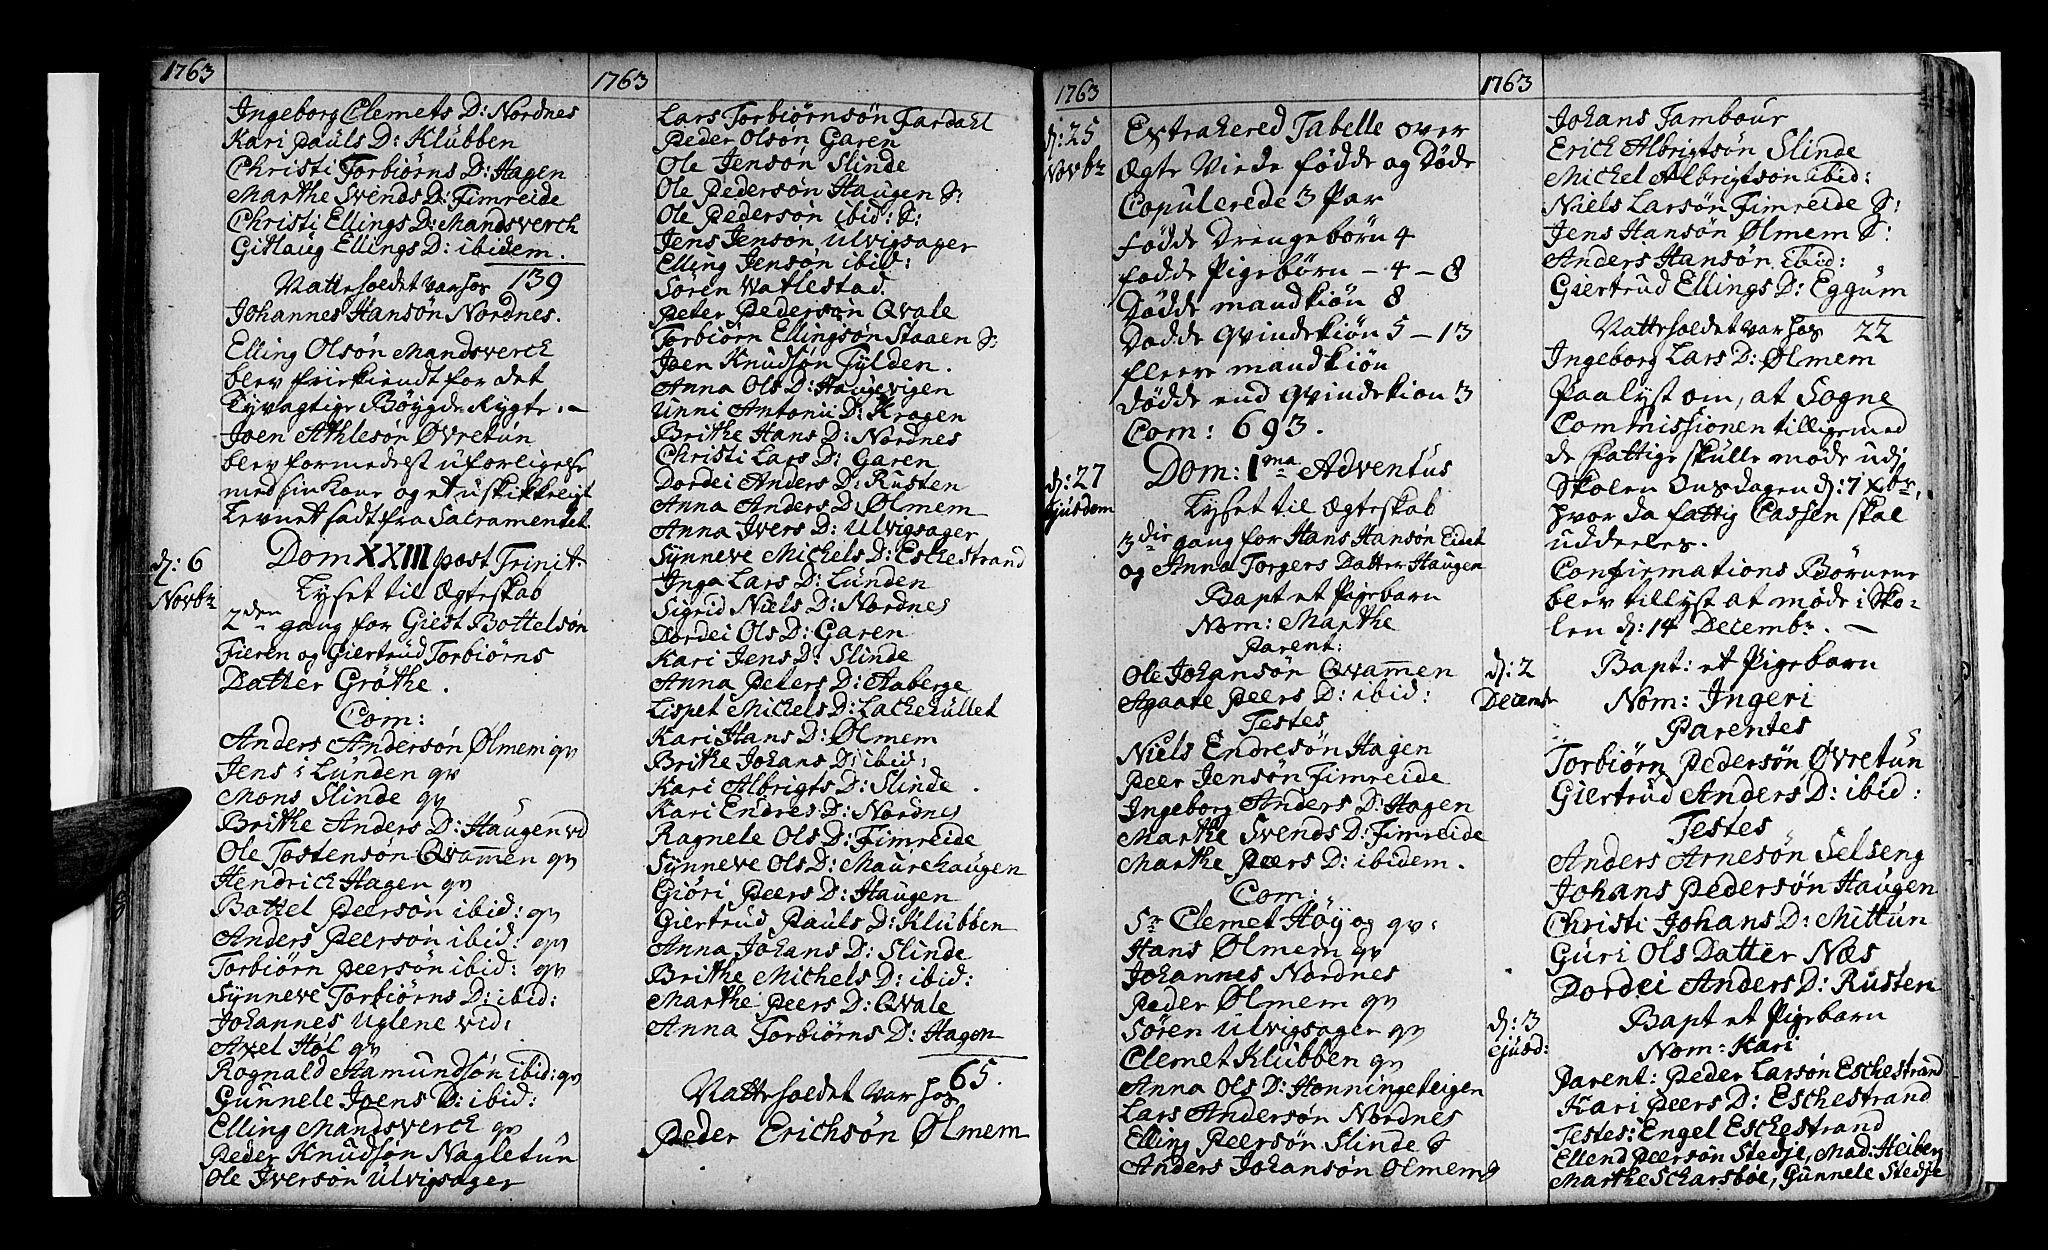 1763
Ingeborg Clemets D: Nordnes
Kari Pauls D: Klubben
Christi Torbiørns D: Hagen
Marthe Svends D: Fimreide
Christi Ellings D: Mandsverch
Gitlaug Ellings D: ibidem.
Natteholdet var hos 139
Johannes Hansøn Nordnes.
Elling Olsøn Mandsverch
blev frikiendt for det
Tyvagtige Bøygde Rygte. –
Joen Athlesøn Øvretun
blev formedelst uforligelse
med sin Kone og et uskikkeligt
Levnet sadt fra Sacramentet.
d: 6 Novbr
Dom XXIII post Trinit:
Lyset til Ægteskab
2den gang for Giest Bottelsøn
Fieren og Giertrud Torbiørns
Datter Grøthe.
Com:
Anders Andersøn Ølmem qv
Jens i Lunden qv
Mons Slinde qv
Brithe Anders D: Haugen vid
Ole Tostensøn Qvammen qv
Hendrich Hagen qv
Battel Peersøn ibid: qv
Anders Peersøn ibid: qv
Torbiørn Peersøn ibid: qv
Synneve Torbiørns D: ibid:
Johannes Uglene vid:
Axel Høl qv
Rognald Hamundsøn ibid: qv
Gunnele Joens D: ibid:
Elling Mandsverch qv
Peder Knudsøn Nagletun
Ole Iversøn Ulvigsager
1763
Lars Torbiørnsøn Fardahl
Peder Olsøn Garen
Ole Jensøn Slinde
Ole Pedersøn Haugen S:
Ole Pedersøn ibid: S:
Jens Jensøn Ulvigsager
Elling Jensøn ibid:
Søren Vatlestad
Peter Pedersøn Qvale
Torbiørn Ellingsøn Staaen S:
Joen Knudsøn Fylden.
Anna Ols D: Haugevigen
Unni Antonii D: Kragen
Brithe Hans D: Nordnes
Christi Lars D: Garen
Dordei Anders D: Rusten
Anna Anders D: Ølmem
Anna Ivers D: Ulvigsager
Synneve Michels D: Eschestrand
Inga Lars D: Lunden
Sigrid Niels D: Nordnes
Dordei Ols D: Garen
Kari Jens D: Slinde
Anna Peters D: Aaberge
Lispet Michels D: Lachehullet
Kari Hans D: Ølmem
Brithe Johans D: ibid:
Kari Albrigts D: Slinde.
Kari Endres D: Nordnes
Ragnele Ols D: Fimreide
Synneve Ols D: Maurehaugen
Giøri Peers D: Haugen
Giertrud Pauls D: Klubben
Anna Johans D: Slinde
Brithe Michels D: ibid:
Marthe Peers D: Qvale
Anna Torbiørns D: Hagen
65.
Natteholdet var hos
Peder Erichsøn Ølmem
1763
d: 25 Novbr
Extrahered Tabelle over
Ægte Viede fødde og Døde
Copulerede 3 Par
fødde Drengebørn 4
fødde Pigebørn – 4 – 8
Dødde mandkiøn 8
Dødde Qvindekiøn 5 – 13
fleere mandkiøn
dødde end Qvindekiøn 3
Com: 693.
d: 27 Ejusdem
Dom: 1ma Adventus
Lyset til Ægteskab
3die gang for Hans Hansøn Eidet
og Anna Torgers Datter Haugen
Bapt et Pigebarn
Nom: Marthe
Parent:
Ole Johansøn Qvammen
Agaate Peers D: ibid:
Testes
Niels Endresøn Hagen
Peer Jensøn Fimreide
Ingeborg Anders D: Hagen
Marthe Svends D: Fimreide
Marthe Peers D: ibidem.
Com:
Sr Clemet Høÿ og qv:
Hans Ølmem qv
Johannes Nordnes
Peder Ølmem qv
Søren Ulvigsager qv
Clemet Klubben qv
Anna Ols D: Honningeteigen
Lars Andersøn Nordnes
Elling Peersøn Slinde S
Anders Johansøn Ølmem
1763
Johans Tambour
Erich Albrigtsøn Slinde
Michel Albrigtsøn ibid:
Niels Larsøn Fimreide S:
Jens Hansøn Ølmem S:
Anders Hansøn ibid:
Giertrud Ellings D: Eggum
Natteholdet var hos 22
Ingeborg Lars D: Ølmem
Paalyst om, at Sogne
Commissionen tilligemed
de fattige skulle møde udj
Skolen Onsdagen d: 7 Xbr,
hvor da fattig Cassen skal
uddeeles.
Confirmations Børnene
blev tillyst at møde i Sko-
len d: 14 Decembr. –
d: 2 Decembr
Bapt: et Pigebarn
Nom: Ingeri
Parentes
Torbiørn Pedersøn Øvretun
Giertrud Anders D: ibid:
Testes
Anders Arnesøn Selseng
Johans Pedersøn Haugen
Christi Johans D: Mittun
Guri Ols Datter Næs
Dordei Anders D: Rusten
d: 3 ejusd:
Bapt et Pigebarn
Nom: Kari
Parent: Peder Larsøn Eschestrand
Kari Peers D: Eschestrand
Testes: Engel Eschestrand
Ellend Peersøn Stedje, Mad: Heiberg
Marthe Scharsbøe, Gunnele Stedje